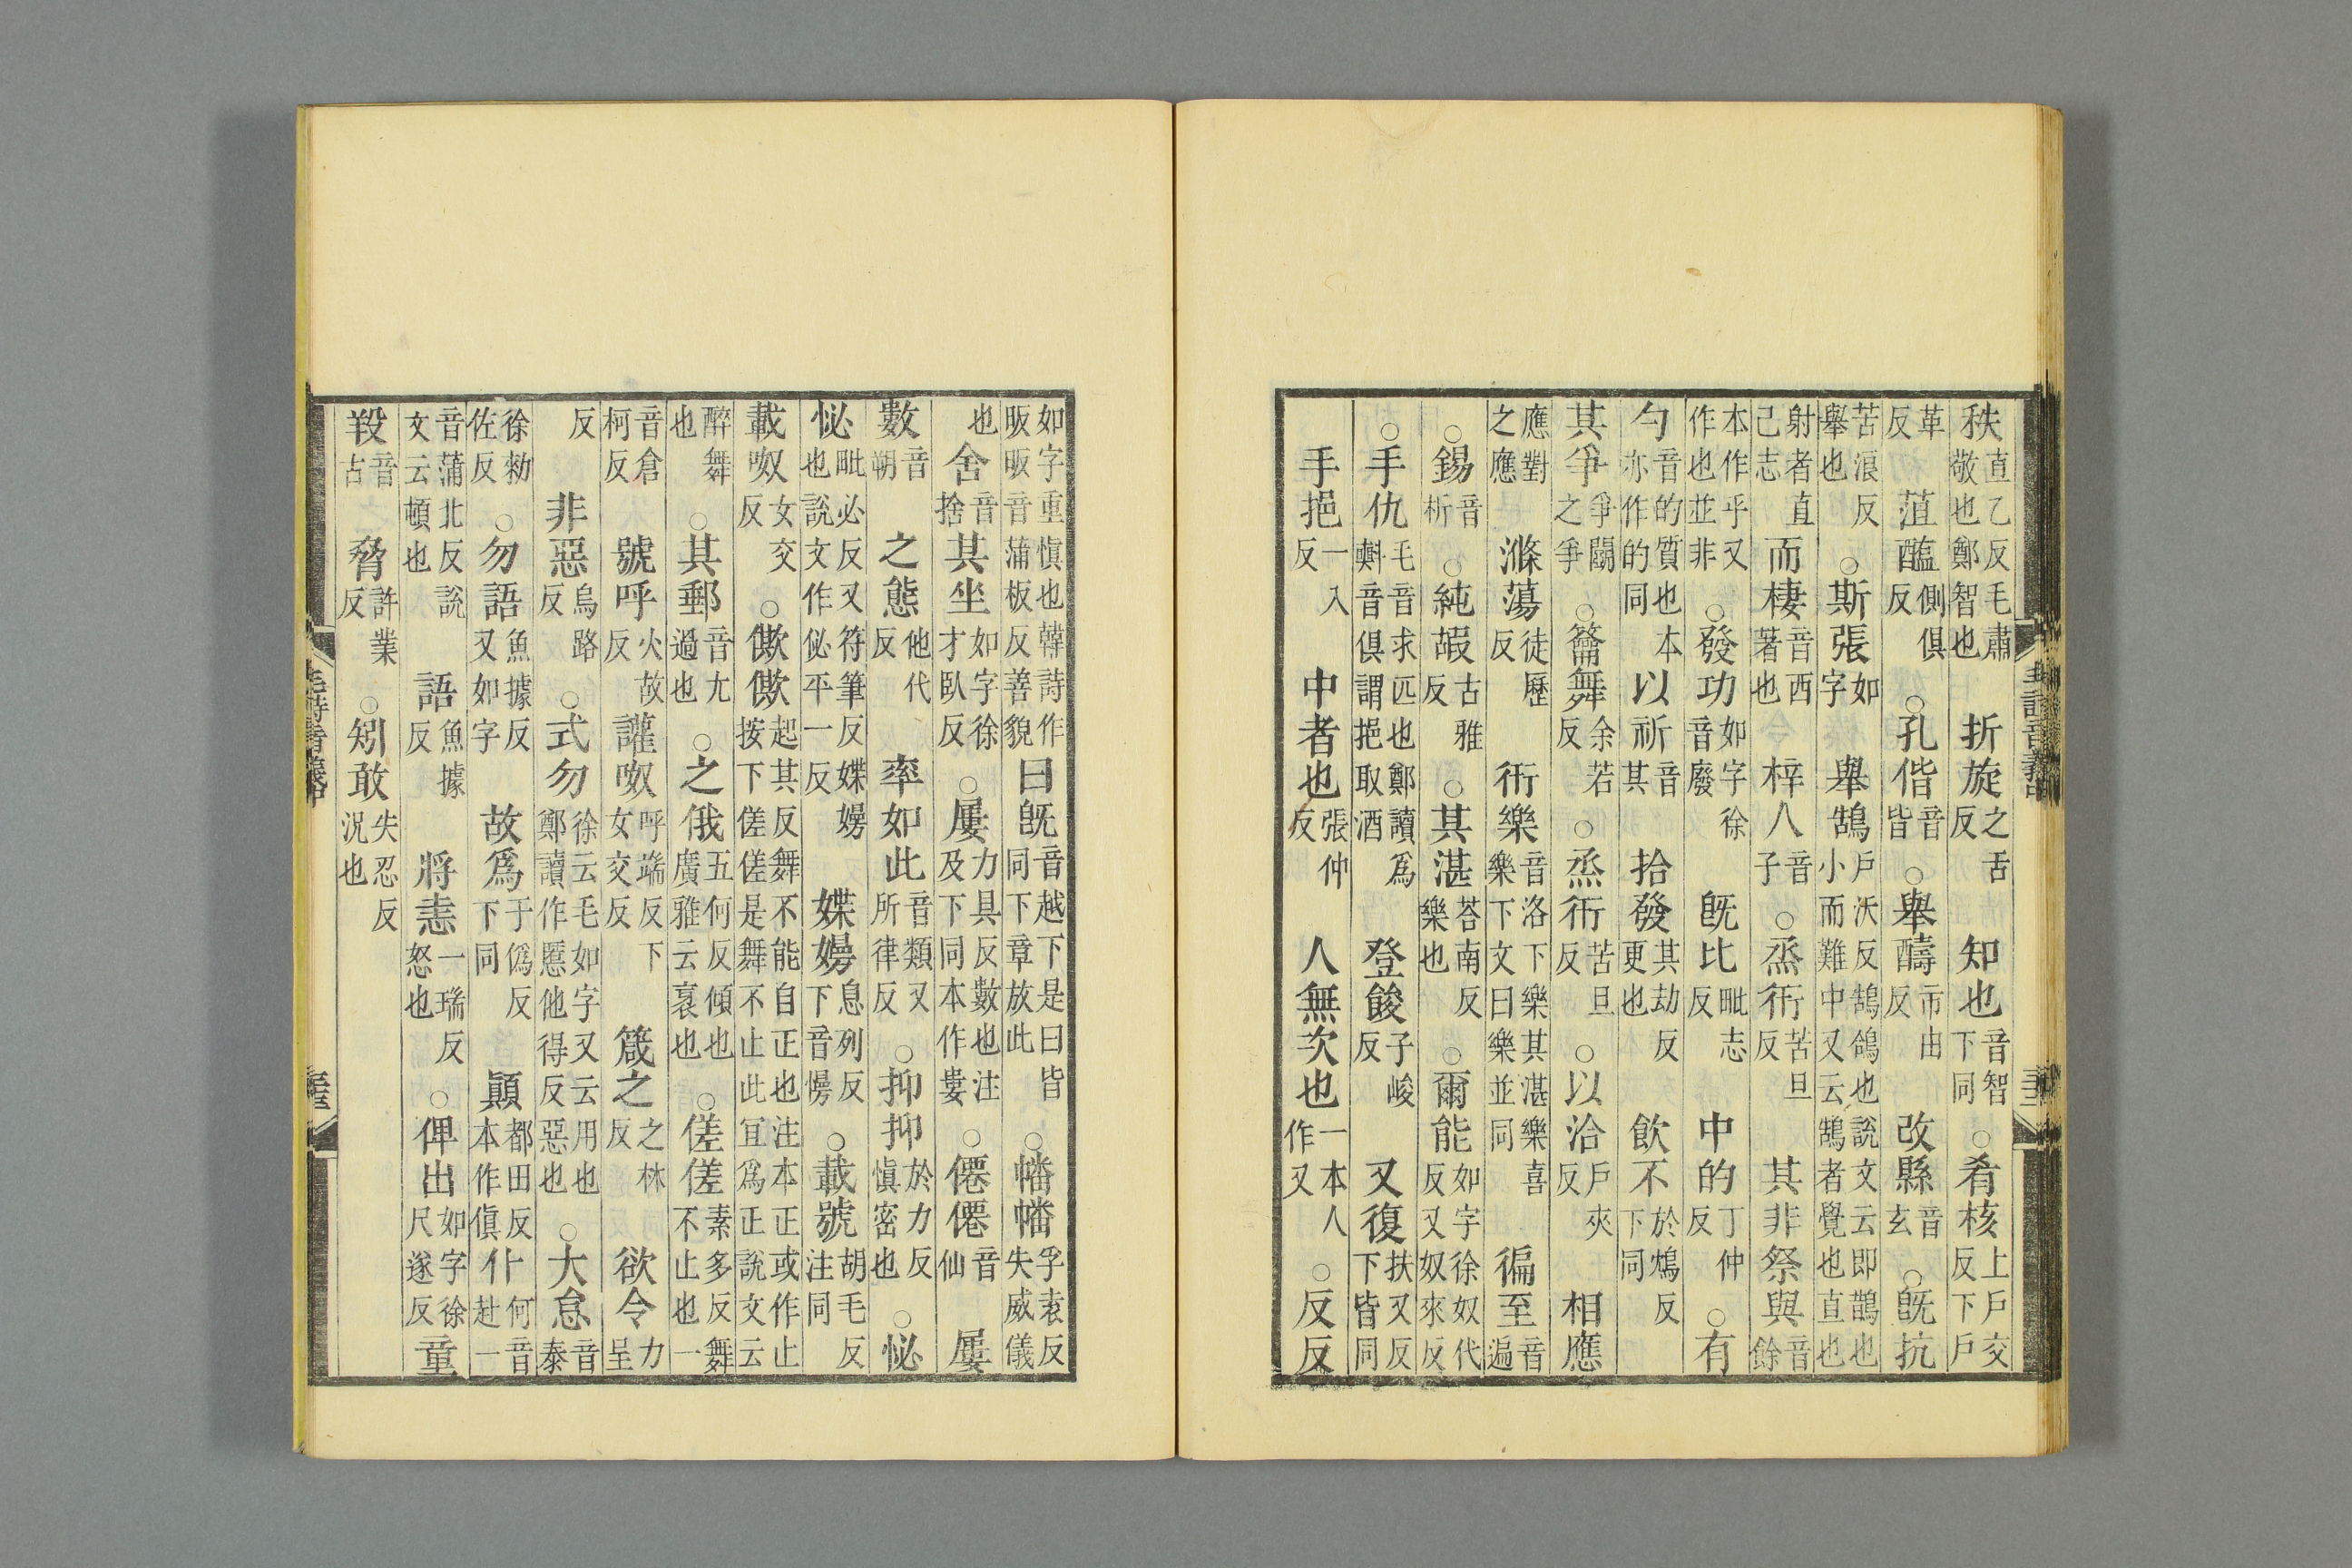 秩直乙反毛肅敬也鄭智也折旋之舌反知也音智下同○肴核上戶交反下戶
革反菹醢側俱反○孔偕音皆○舉醻市由反改縣音玄○旣抗
苦浪反舉也○斯張如字舉鵠戶沃反鵠鴿也說文云即鵲也小而難中又云鵠者覺也直也
射者直己志而棲音西著也梓人音子○烝衎苦旦反其非祭與音餘
本作乎又作也並非○發功如字徐音廢旣比毗志反中的丁仲反○有
勺音的質也本亦作的同以祈音其拾發其劫反更也飮不於鴆反下同
其爭爭鬭之爭○籥舞余若反○烝衎苦旦反○以洽戶夾反相應
應對之應滌蕩徒歷反衎樂音洛下樂其湛樂喜樂下文曰樂並同徧至音遍
○錫音析○純嘏古雅反○其湛荅南反樂也○爾能如字徐奴代反又奴來反
○手仇毛音求匹也鄭讀爲㪺音俱謂挹取酒登餕子峻反又復扶又反下皆同
手挹一入反中者也張仲反人無次也一本人作又○反反
如字重愼也韓詩作昄昄音蒲板反善貌曰旣音越下是曰皆同下章放此○幡幡孚袁反失威儀
也舍音捨其坐如字徐才臥反○屢力具反數也注及下同本作婁○僊僊音仙屢
數音朔之態他代反率如此音類又所律反○抑抑於力反愼密也○怭
怭毗必反又符筆反媟嫚也說文作佖平一反媟嫚息列反下音慢○載號胡毛反注同
載呶女交反○僛僛起其反舞不能自正也注本正或作止按下傞傞是舞不止此宜爲正說文云
醉舞也○其郵音尤過也○之俄五何反傾也廣雅云衺也○傞傞素多反舞不止也一
音倉柯反號呼火故反讙呶呼端反下女交反箴之之林反欲令力呈
反非惡烏路反○式勿徐云毛如字又云用也鄭讀作慝他得反惡也○大怠音泰
徐勑佐反○勿語魚據反又如字故爲于僞反下同顚都田反本作傎仆何音赴一
音蒲北反說文云頓也語魚據反將恚一瑞反怒也○俾出如字徐尺遂反童
羖音古脅許業反○矧敢失忍反況也
毛詩音義中